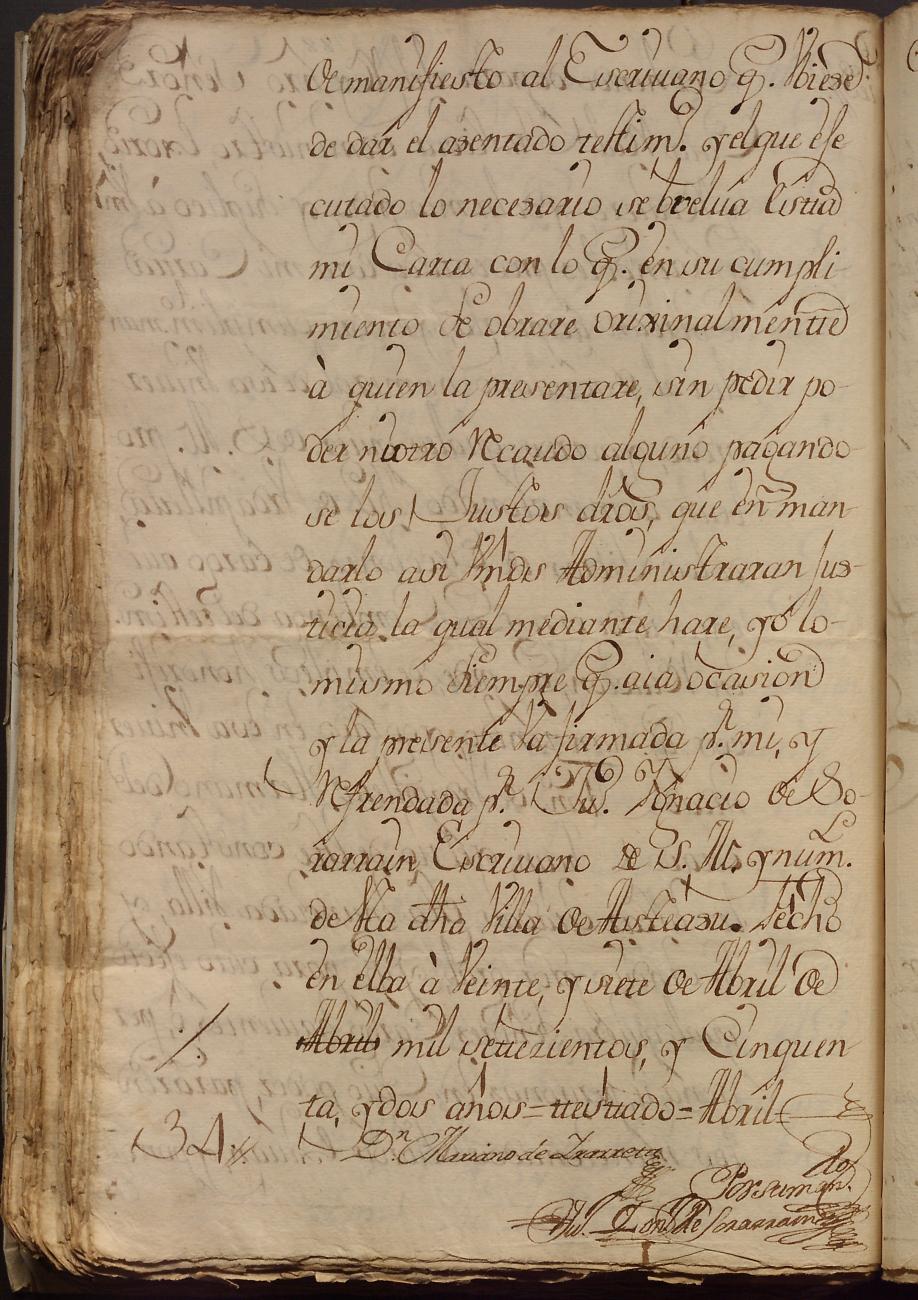 de manifiesto al Escriuano q. hiese
de dar el asentado testim.º y el que ese
cutado lo necesario, se buelua esta
mi Carta con lo q. en su cumpli
miento se obrare orixinalmente
à quien la presentare, sin pedir po-
der ni otro Recaudo alguno pagando
se los Justos dr̃os, que en man
darlo asi Vmds Administraran Jus-
ticia, la qual mediante hare, yo lo-
mismo siempre q. aia ocasion
y la presente Va firmada p.r mi, y
Refrendada p.r Ju.º Ignacio de So-
rarrain, Escriuano de S. M. y num.
de Sta dha Villa de Asteasu. Fecho
en ella à Veinte, y siete de Abril de
Abril mil settezientos, y Cinquen
ta, y dos años = ttestado = Abril
34
D.n Mariano de Zrarreta
Por su man.do
Ju.º Ign.º de Sorarrain